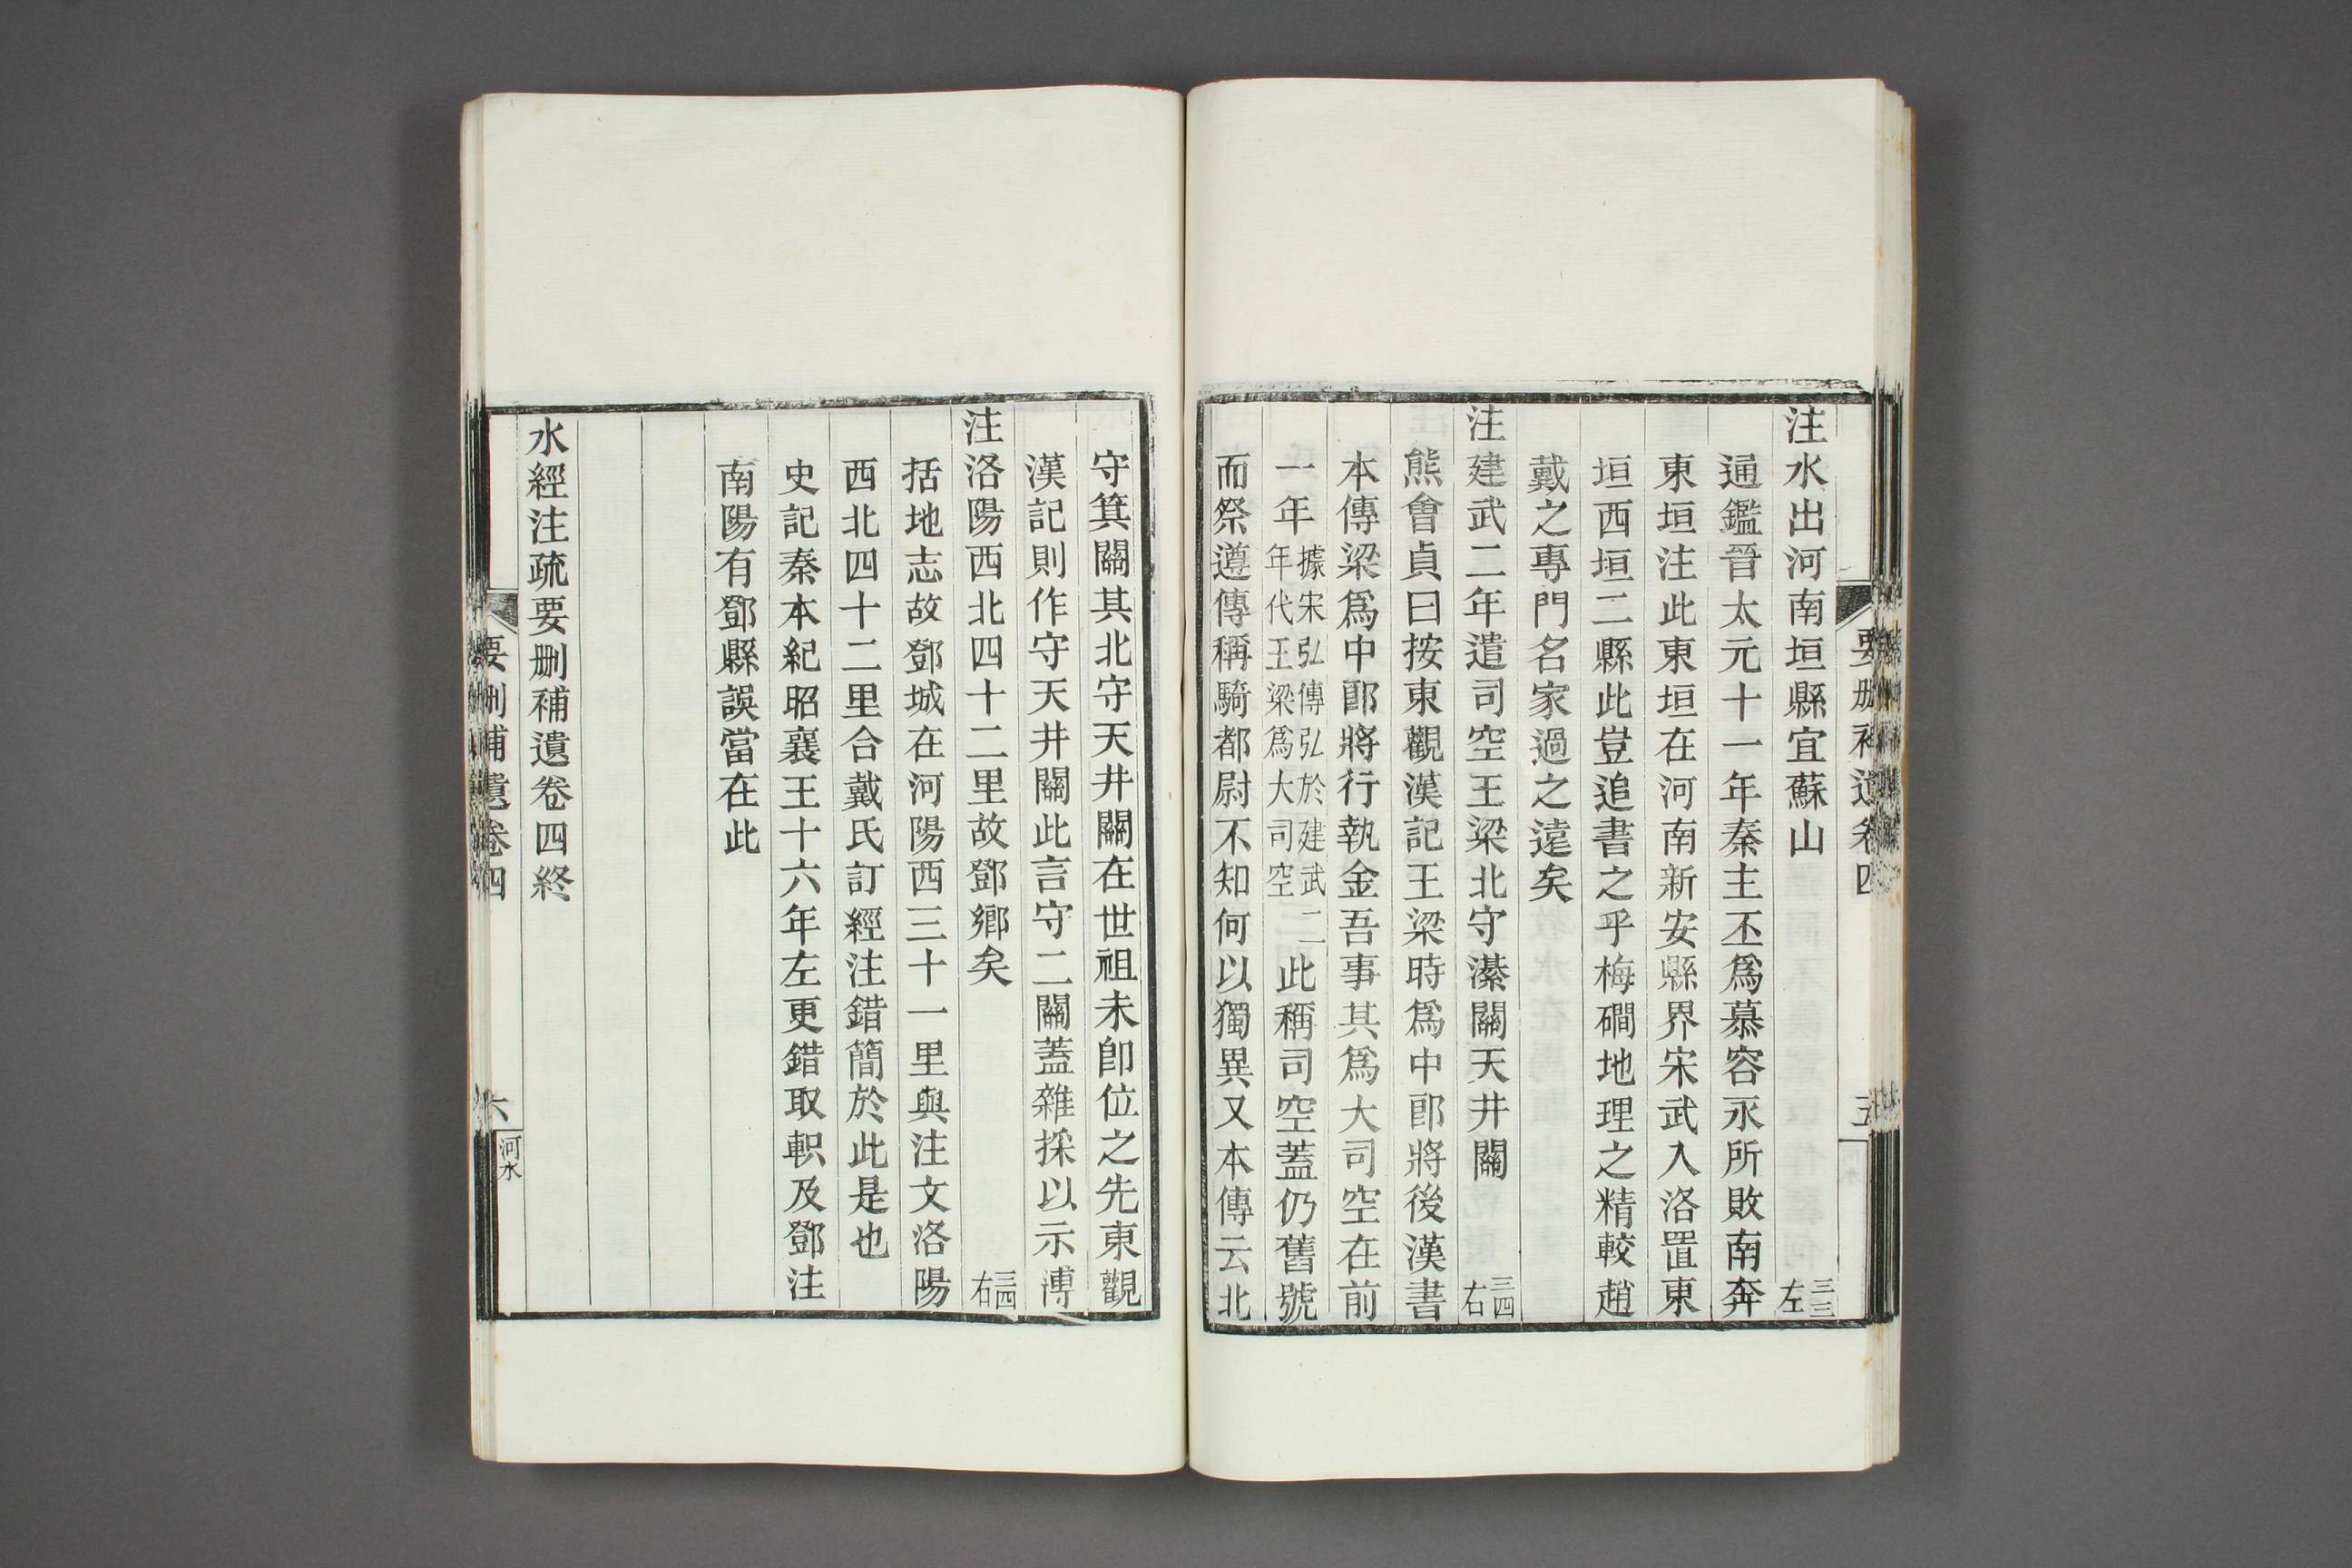 注水出河南垣縣宜蘇山 三三左
通鑑晉太元十一年秦主丕爲慕容永所敗南奔
東垣注此東垣在河南新安縣界宋武入洛置東
垣西垣二縣此豈追書之乎梅磵地理之精較趙
戴之專門名家過之遠矣
注建武二年遣司空王梁北守濝關天井關 三四右
熊會貞曰按東觀漢記王梁時爲中郎將後漢書
本傳梁爲中郎將行執金吾事其爲大司空在前
一年據宋弘傳弘於建武二年代王梁爲大司空此稱司空蓋仍舊號
而祭遵傳稱騎都尉不知何以獨異又本傳云北
要刪補遺卷四
守箕關其北守天井關在世祖未卽位之先東觀
漢記則作守天井關此言守二關蓋雜採以示博
注洛陽西北四十二里故鄧鄉矣 三四右
括地志故鄧城在河陽西三十一里與注文洛陽
西北四十二里合戴氏訂經注錯簡於此是也
史記秦本紀昭襄王十六年左更錯取軹及鄧注
南陽有鄧縣誤當在此
水經注疏要刪補遺卷四終
要刪補遺卷四
六
河水